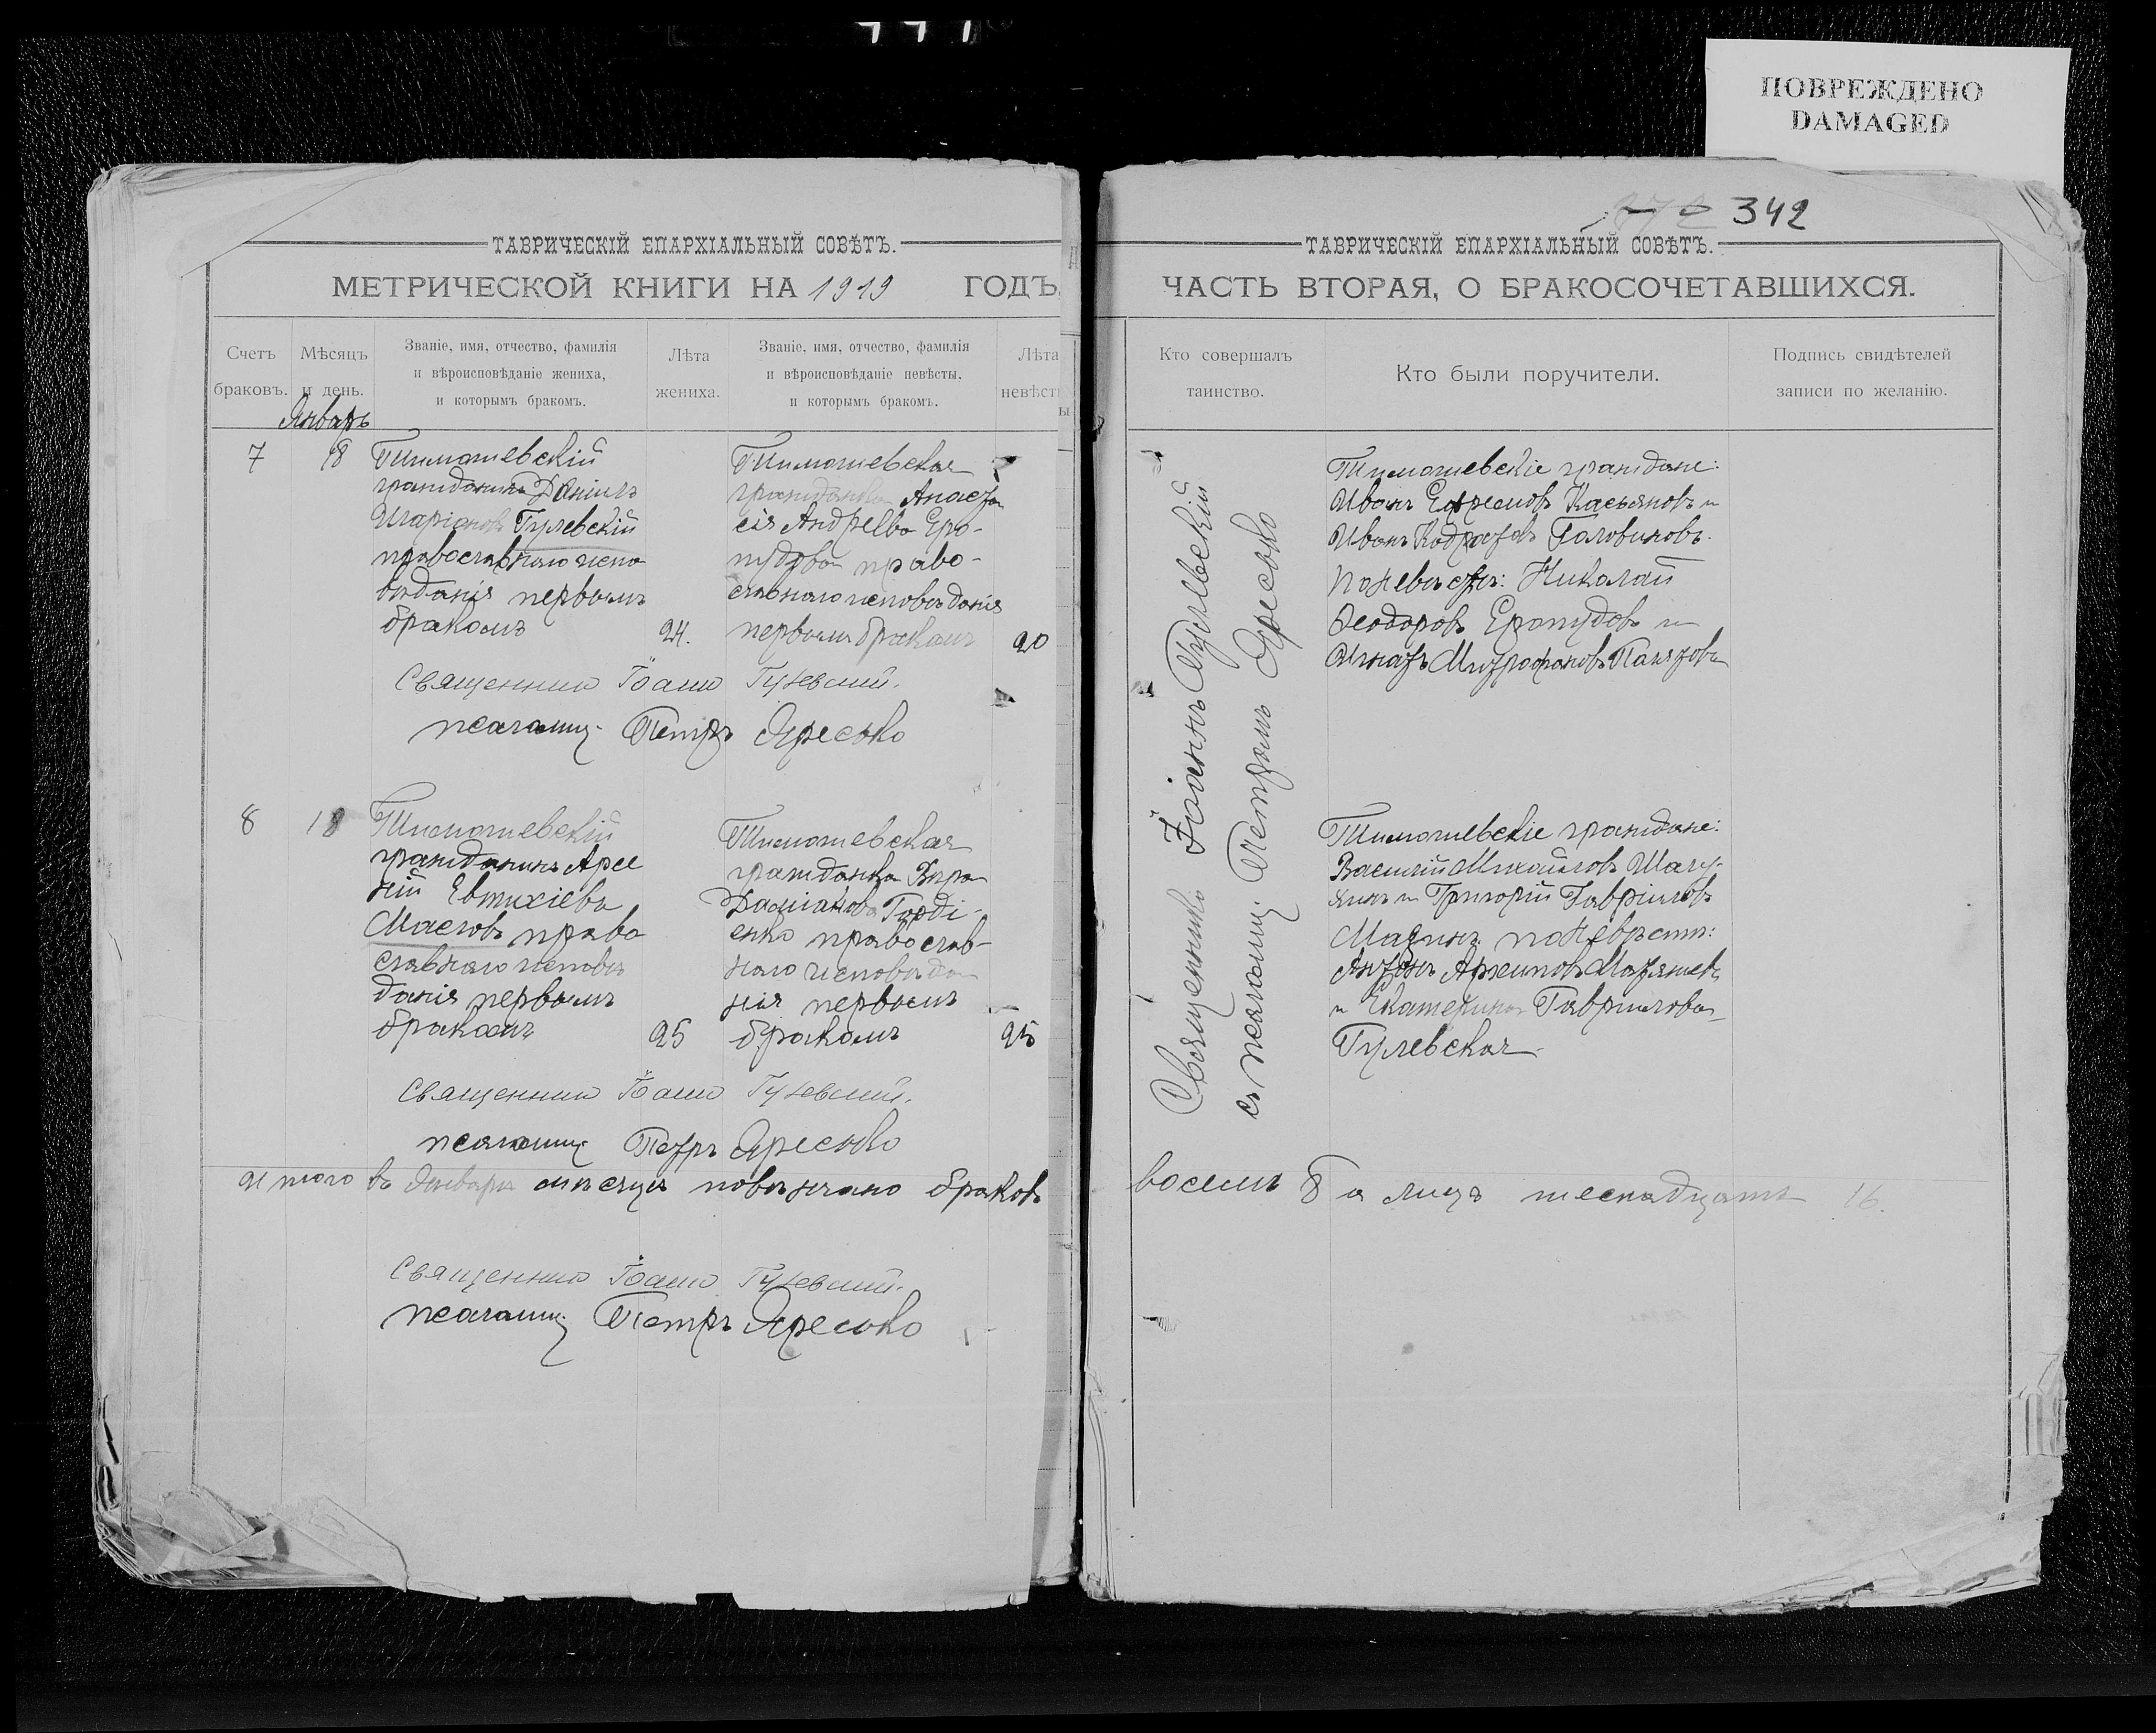 ПОВРЕЖДЕНО
DAMAGED
342
ТАВРИЧЕСКІЙ ЕПАРХІАЛЬНЫЙ СОВѢТЪ.
МЕТРИЧЕСКОЙ КНИГИ НА 1919 ГОДЪ,
Счетъ браковъ.
Мѣсяцъ и день.
Званіе, имя, отчество, фамилія
и вѣроисповѣданіе жениха,
и которымъ бракомъ.
Лѣта жениха.
Званіе, имя, отчество, фамилія
и вѣроисповѣданіе невѣсты,
и которымъ бракомъ.
Лѣта невѣсты
Январь
7
18
Тимошевскій
гражданинъ Даніилъ
Иларіоновъ Гулевскій
православнаго испо
вѣданія первымъ
бракомъ
24.
Тимошевская
гражданка Анаста
сія Андреева Еро-
шудова право-
славнаго исповѣданія
первымъ бракомъ
20
Священникъ Іоаннъ Гулевскій.
псаломщ. Петръ Яресько
8
18
Тимошевскій
гражданинъ Арсе
ній Евтихіевъ
Масловъ право
славнаго исповѣ
данія первымъ
бракомъ
25
Тимошевская
гражданка Вѣра
Даміанова Горді-
енко православ-
наго исповѣда
нія первымъ
бракомъ
25
Священникъ Іоаннъ Гулевскій.
псаломщ Петръ Яресько
Итого въ Январѣ мѣсяцѣ повѣнчано браковъ
Священникъ Іоаннъ Гулевскій.
псаломщ. Петръ Яресько
ТАВРИЧЕСКІЙ ЕПАРХІАЛЬНЫЙ СОВѢТЪ.
ЧАСТЬ ВТОРАЯ, О БРАКОСОЧЕТАВШИХСЯ.
Кто совершалъ
таинство.
Кто были поручители.
Подпись свидѣтелей
записи по желанію.
Священникъ Іоаннъ Гулевскій
съ псаломщ. Петромъ Яресько
Тимошевскіе граждане:
Иванъ Ефремовъ Касьяновъ и
Иванъ Кодратовъ Головиновъ.
по невѣстѣ: Николай
Феодоровъ Ерошудовъ и
Игнатъ Митрофановъ
Тимошевскіе граждане:
Василій Михайловъ
и Григорій Гавріиловъ
по невѣстѣ:
Антонъ Архиповъ
и Екатерина Гавріилова
Гулевская
восемь 8 а лицъ шеснадцать 16.